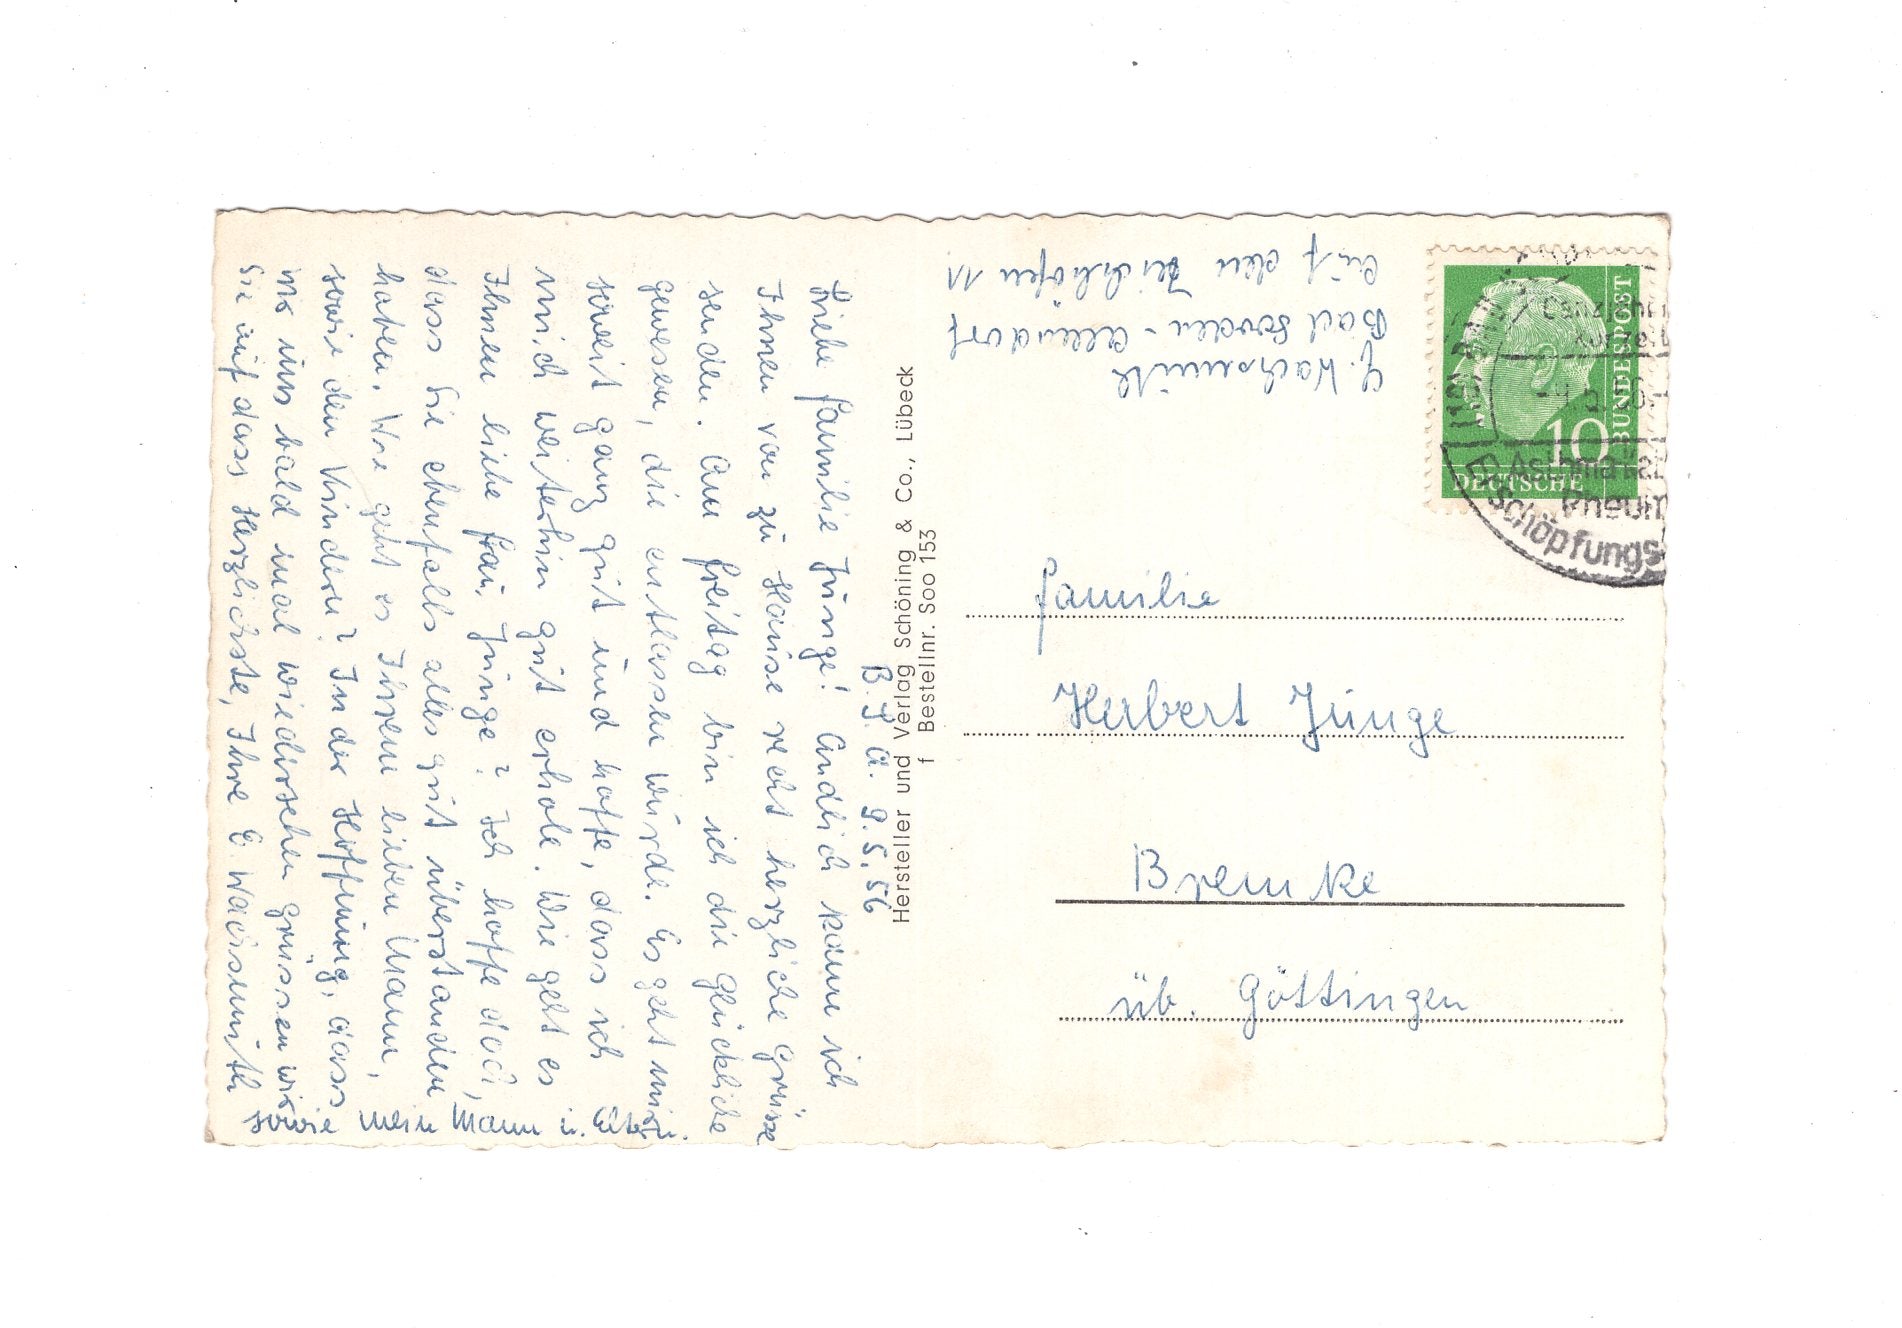 B. S. A. 9.5.56
Liebe Familie Junge! Endlich kann ich
Ihnen von zu Hause recht herzliche Grüsse
senden. Am Freitag bin ich die Glückliche
gewesen, die entlassen wurde. Es geht mir
soweit ganz gut und hoffe, dass ich
mich weiterhin gut erhole. Wie geht es
Ihnen liebe Frau Junge? Ich hoffe doch,
dass Sie ebenfalls alles gut überstanden
haben. Wie geht es Ihrem lieben Mann,
sowie den Kindern? In der Hoffnung, dass
wir uns bald mal wiedersehen grüssen wir
Sie auf dass Herzlichste, Ihre E. Wachsmuth
sowie mein Mann u. Eltern.
Hersteller und Verlag Schöning & Co., Lübeck
f Bestellnr. Soo 153
Wachsmuth
Bad Sooden-Allendorf
Auf den 11
DEUTSCHE
BUNDESPOST
10
Schöpfungs
Familie
Herbert Junge
Bremke
üb. Göttingen